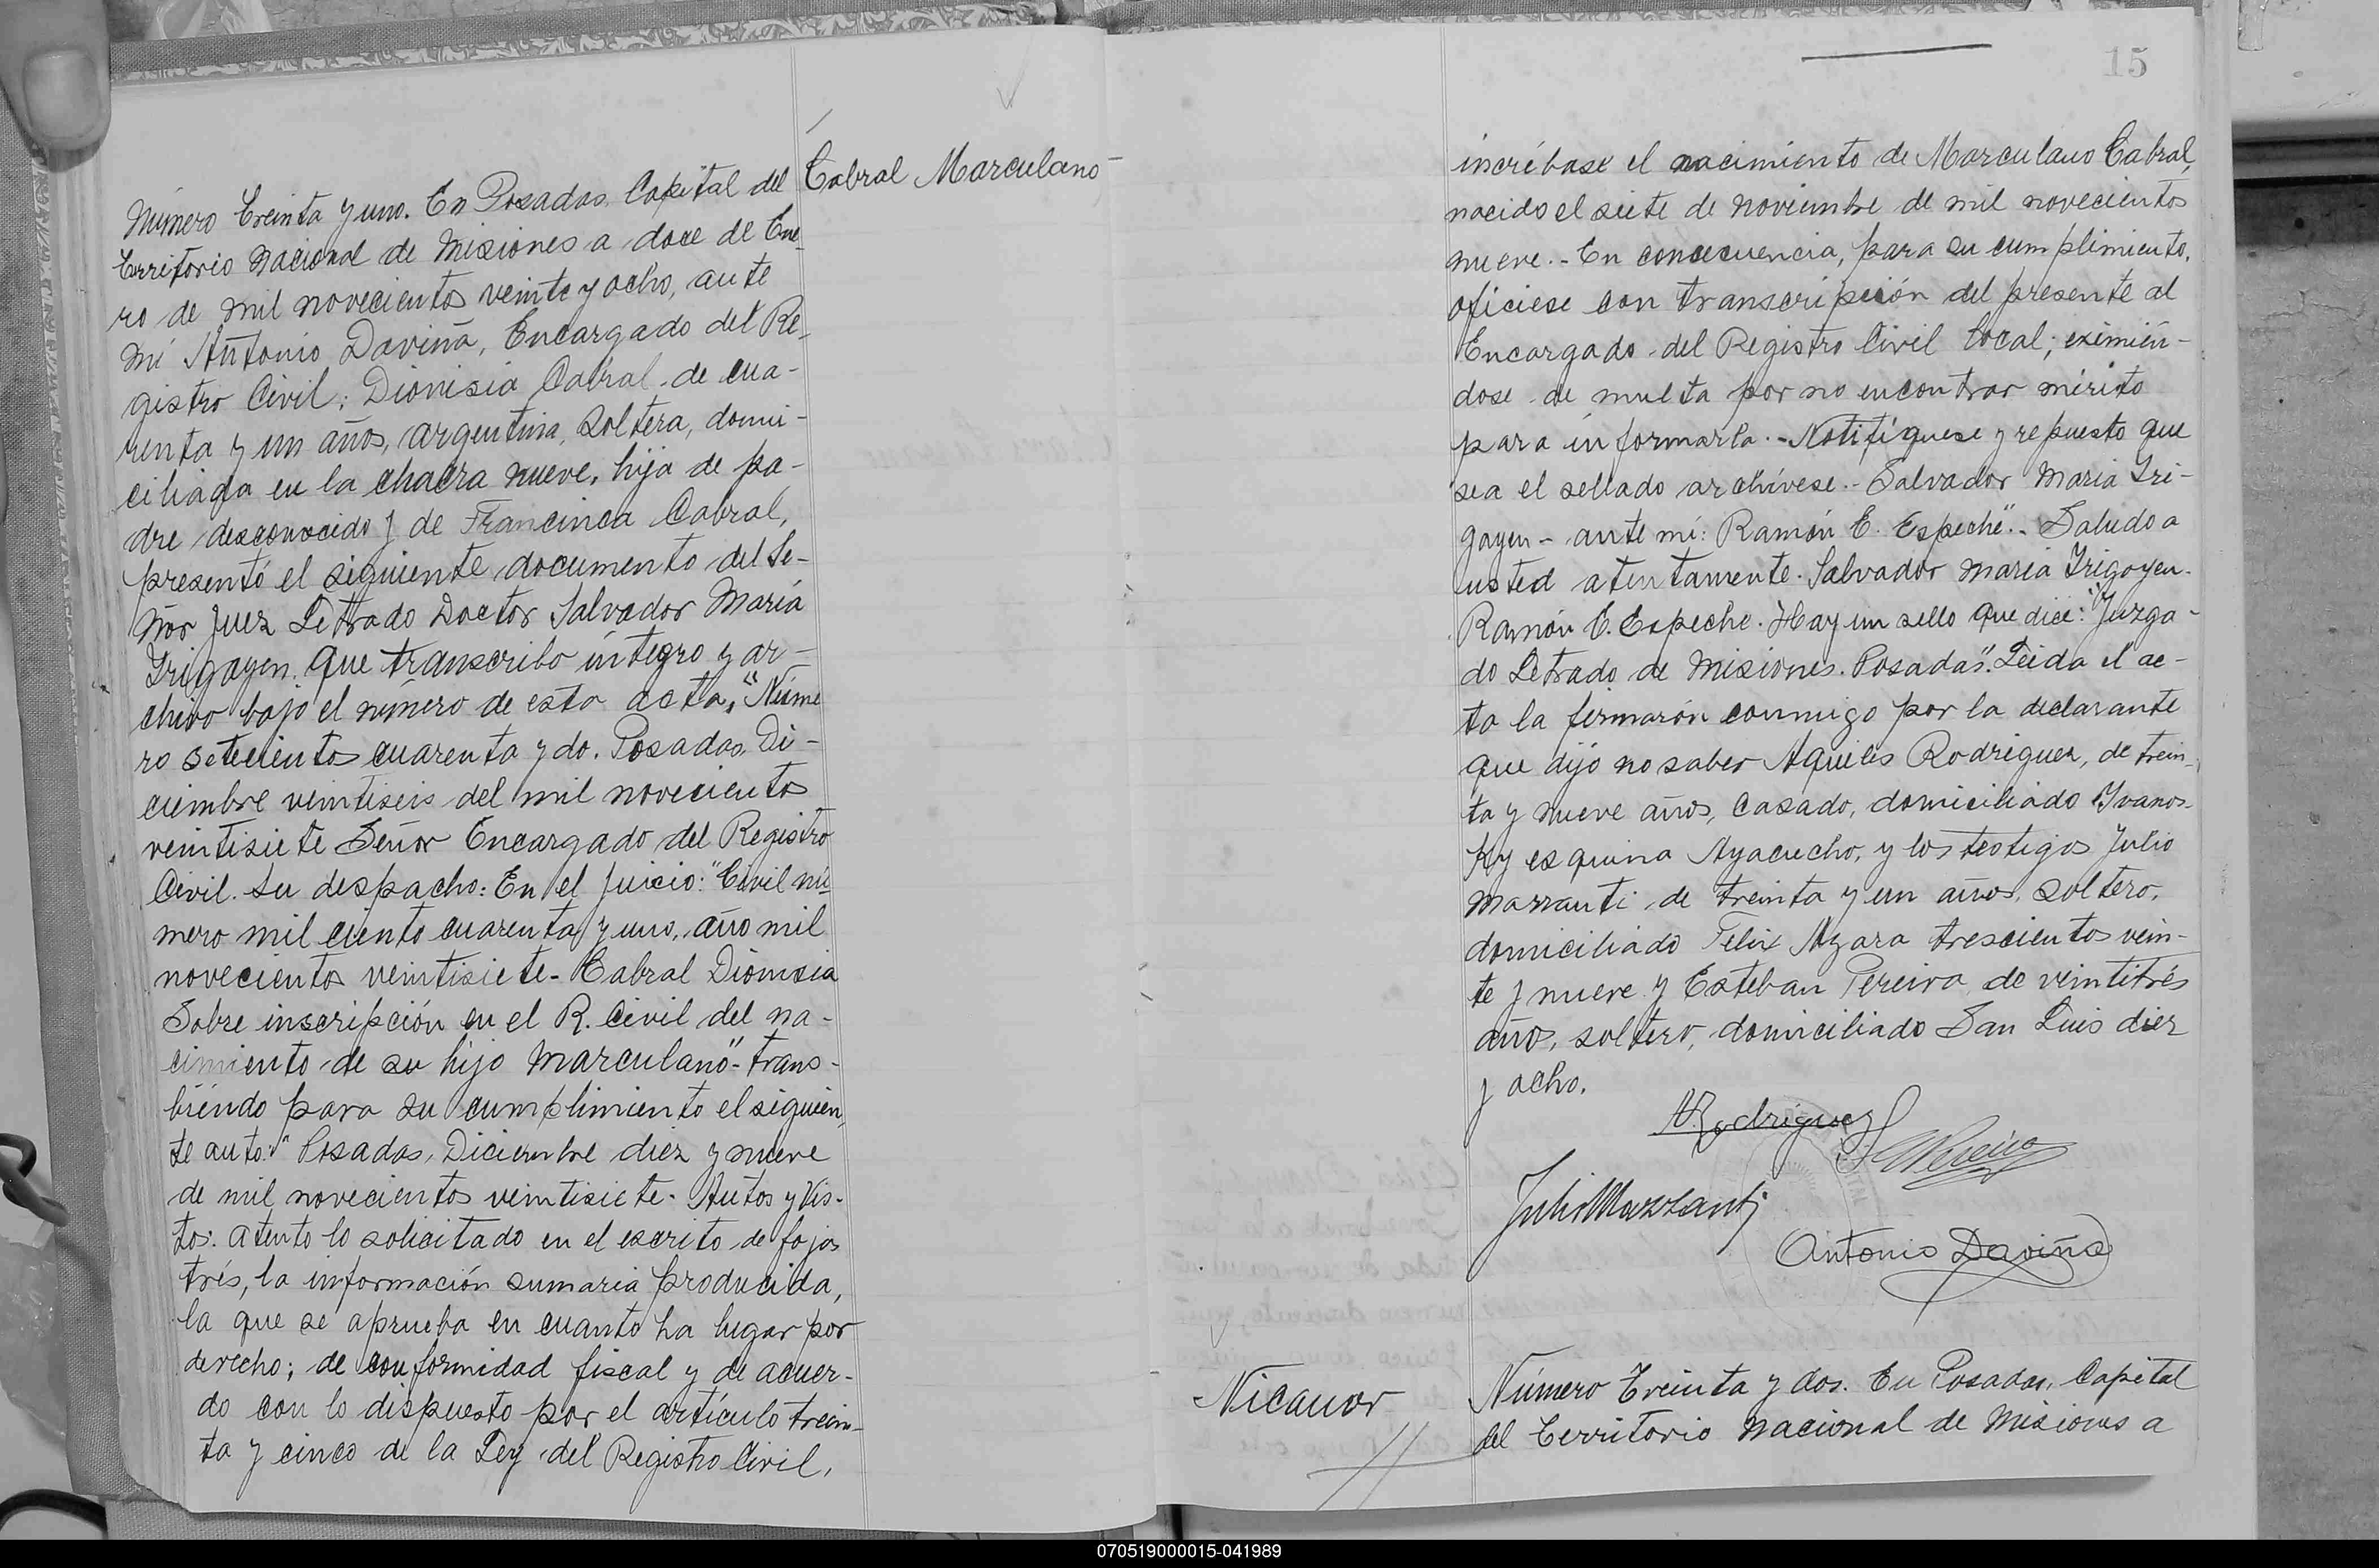 Cabral Marculano
Número treinta y uno. En Posadas, Capital del
territorio nacional de Misiones a doce de Ene-
ro de mil novecientos veinte y ocho, ante
mí Antonio Daviña, Encargado del Re-
gistro Civil: Dionisia Cabral de cua-
renta y un años, argentina, soltera, domi-
ciliada en la chacra nueve, hija de pa-
dre desconocido y de Francinca Cabral,
presentó el siguiente documento del Se-
ñor Juez Letrado Doctor Salvador María
Irigoyen, que transcribo íntegro y ar-
chivo bajo el número de esta acta. "Núme
ro setecientos cuarenta y do. Posadas, Di-
ciembre veintiseis del mil novecientos
veintisiete Señor Encargado del Registro
Civil. Su despacho: En el juicio: "Civil nú
mero mil ciento cuarenta y uno, año mil
novecientos veintisiete - Cabral Dionisia
Sobre inscripción en el R. Civil del na-
cimiento de su hijo Marculano"- trans-
biendo para su cumplimiento el siguien,
te auto: " Posadas, Diciembre diez y nueve
de mil novecientos veintisiete. Autos y Vis-
tos: atento lo solicitado en el escrito de fojas
trés, la información sumaria producida,
la que se aprueba en cuanto ha lugar por
derecho; de conformidad fiscal y de acuer-
do con lo dispuesto por el artículo trein-
ta y cinco de la Ley del Registro Civil,
15
incríbase el nacimiento de Marculano Cabral,
nacido el siete de noviembre de mil novecientos
nueve. - En consecuencia, para su cumplimiento,
ofíciese con transcripción del presente al
Encargado del Registro Civil local; eximién-
dose de multa por no encontrar mérito
para informarla. - Notifíquese y repuesto que
sea el sellado archívese. - Salvador María Iri-
goyen - ante mí: Ramón E. Espeche". - Saludo a
usted atentamente. Salvador María Irigoyen.
Ramón E. Espeche. Hay un sello que dice: "Juzga-
do Letrado de Misiones. Posadas". Leida el ac-
ta la firmarón conmigo por la declarante
que dijo no saber Aquiles Rodriguez, de trein-
ta y nueve años, casado, domiciliado Ivanos-
ky esquina Ayacucho, y los testigos Julio
Mazzanti de treinta y un años, soltero,
domiciliado Felix Azara trescientos vein-
te y nueve y Esteban Pereira de veintitrés
años, soltero, domiciliado San Luis diez
y ocho.
A. Rodriguez
Julio Mazzanti
Antonio Daviña
Nicanor
Número treinta y dos. En Posadas, Capital
del territorio nacional de Misiones a
070519000015-041989